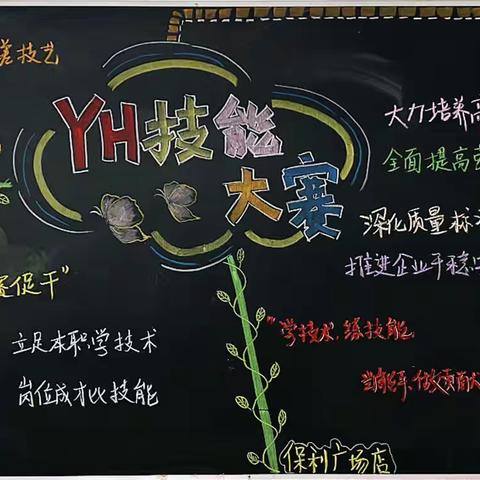 技艺
YH技能
大赛
促干”
立足本职学技术
岗位成才比技能
大力培养高
全面提高
深化质量标
推进企业平稳
“学技术,练技能,
当能手,做贡献
保利广场店